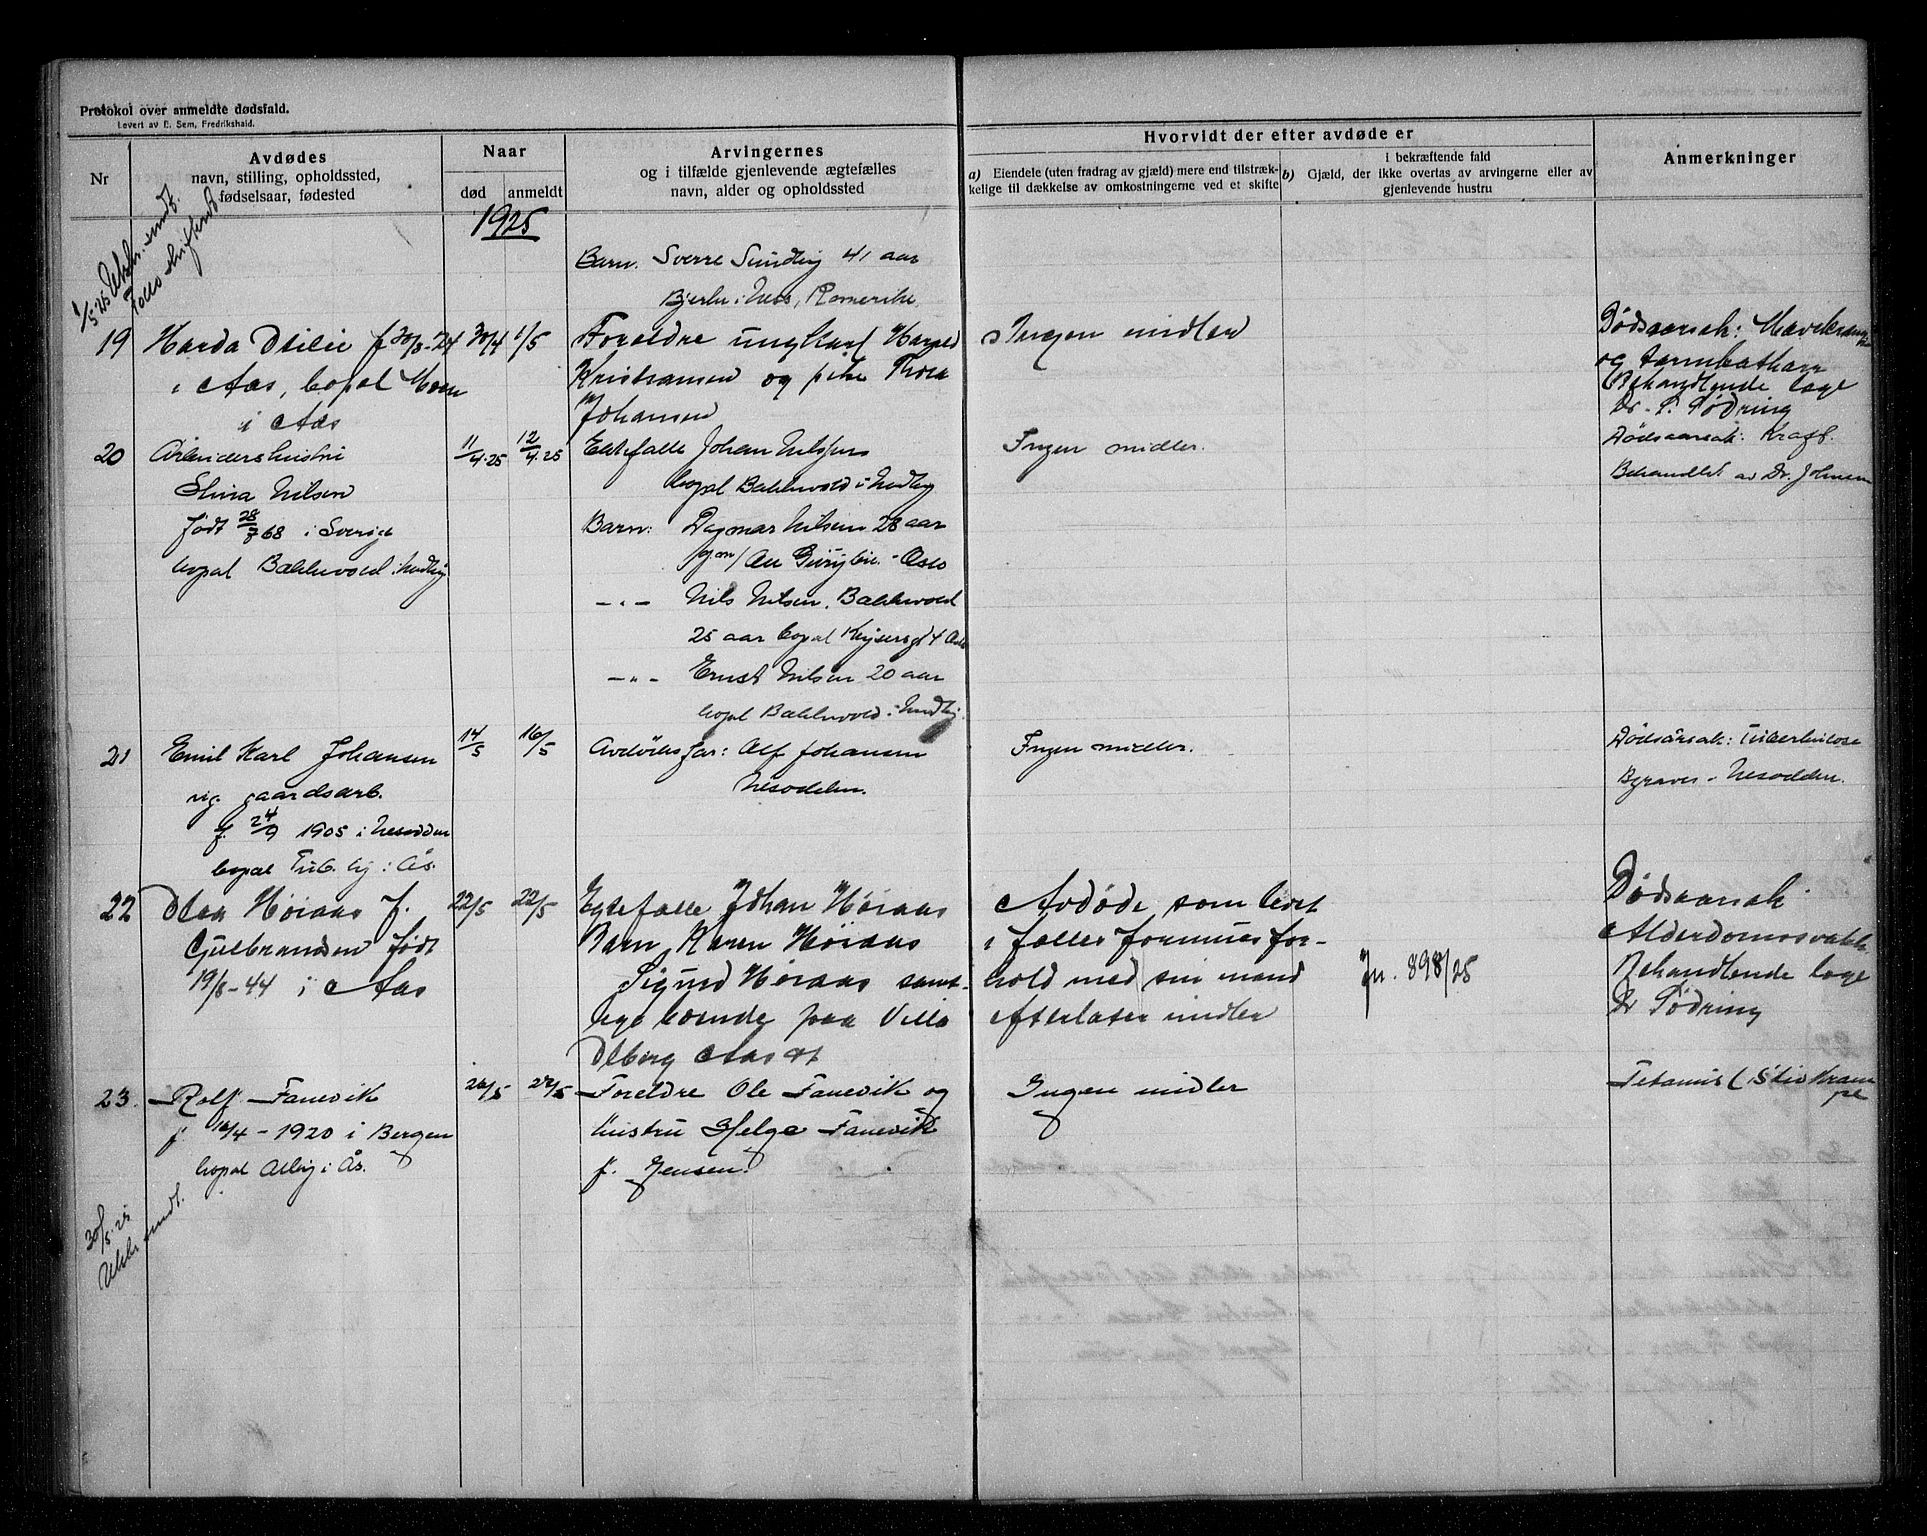 Protokol over anmeldte dødsfald.
Levert av E. Sem, Fredrikshald.
Nr
Avdødes
navn, stilling, opholdssted,
fødselsaar, fødested
Naar
død
anmeldt
Arvingernes
og i tilfælde gjenlevende ægtefælles
navn, alder og opholdssted
Hvorvidt der efter avdøde er
a) Eiendele (uten fradrag av gjæld) mere end tilstræk-
kelige til dækkelse av omkostningerne ved et skifte
i bekræftende fald
b) Gjæld, der ikke overtas av arvingerne eller av
gjenlevende hustru
Anmerkninger
1925
1/5 25 Utskr. sendt.
Follo
Barn. Sverre Sundby 41 aar
i Nes, Romerike
19
f 30/8-24
i Aas, bopal Moer
i Aas
30/4
1/5
Foreldre ungkarl Harald
Kristiansen og pike Thora
Johansen
Ingen midler
Dødsaarsak: Mavekrampe
og tarmkatharr
Behandlende læge
Dr. Tødring
20
Arbeidershustru
Nilsen
født 28/8 68 i Sverige
bopal Bakkevold i Nordby
11/4.25
12/4.25
Ektefælle Johan Nilsen
bopal Bakkevold i Nordby
Barn: Dagmar Nilsen 28 aar
Oslo
— " — Nils Nilsen, Bakkevold
25 aar bopal Keysersgt 4 Oslo
— " — Ernst Nilsen 20 aar
bopal Bakkevold i Nordby.
Ingen midler.
Dødsaarsak: Kræft.
Behandlet av Dr. Johnsen
21
Emil Karl Johansen
ug. gaardsarb.
f. 24/9 1905 i Nesodden
bopal Tub. hj. i Ås.
14/5
16/5
Avdødes far: Alf Johansen
Nesodden.
Ingen midler.
Dødsårsak: Tuberkulose
Begraves i Nesodden.
22
Olea Høiaas f.
Gulbrandsen født
19/8-44 i Aas
22/5
22/5
Egtefælle Johan Høiaas
Barn Karen Høiaas
Sigurd Høiaas samt-
lige boende paa Villa
Olberg Aas st
Avdøde som levet
i fælles formuesfor-
hold med sin mand
efterlater midler
Jn. 898/25
Dødsaarsak
Alderdomssvakh.
Behandlende læge
Dr Tødring
23.
Rolf Fanevik
f. 16/4-1920 i Bergen
bopal i Ås.
26/5
27/5
Foreldre Ole Fanevik og
hustru Helga Fanevik
f. Jensen.
Ingen midler
Tetanus (Stivkram-
pe
30/5.25
Utskr. sendt.